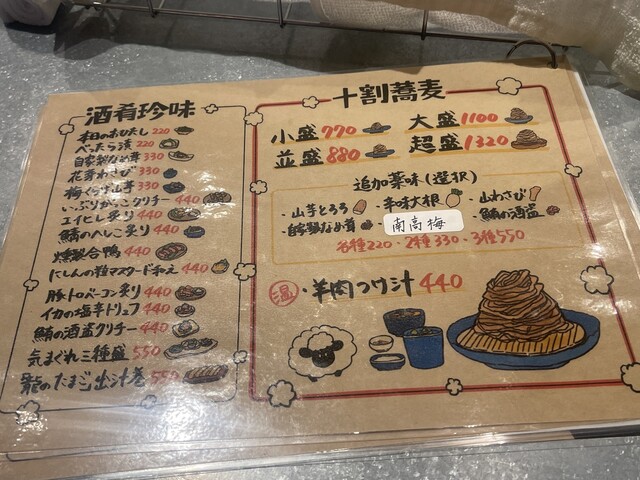 酒肴珍味
べったら漬 220
自家製なめ茸 330
花芽わさび 330
梅くらげ山芋 330
いぶりがっこクリチー 440
エイヒレ炙り 440
鯖のへしこ炙り 440
燻製合鴨 440
にしんの粒マスタード和え 440
豚トロベーコン炙り 440
イカの塩辛トリュフ 440
鮪の酒盗クリチー 440
気まぐれ三種盛 550
のたまご出汁巻 550
十割蕎麦
小盛 770 大盛 1100
並盛 880 超盛 1320
追加薬味(選択)
・山芋とろろ ・辛味大根 ・山わさび
・自家製なめ茸 南高梅 ・鮪の酒盗
各種220・2種330・3種550
温・羊肉つけ汁 440